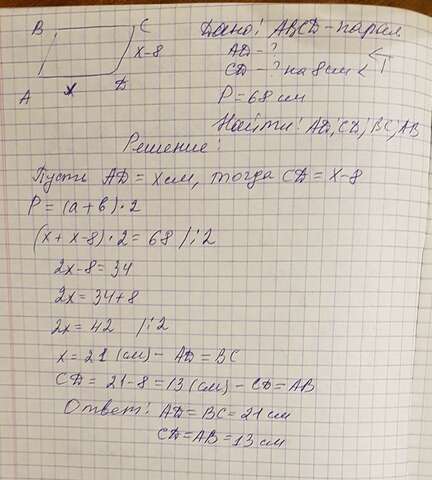 B C
x-8
A x D
Дано: ABCD-парал
AD-?
CD-? на 8см <
P=68 см
Найти: AD, CD, BC, AB
Решение:
Пусть AD = x см, тогда CD = x-8
P = (a+b)·2
(x+x-8)·2=68 /:2
2x-8=34
2x=34+8
2x=42 /:2
x=21 (см) - AD=BC
CD=21-8=13 (см) - CD=AB
Ответ: AD=BC=21 см
CD=AB=13 см